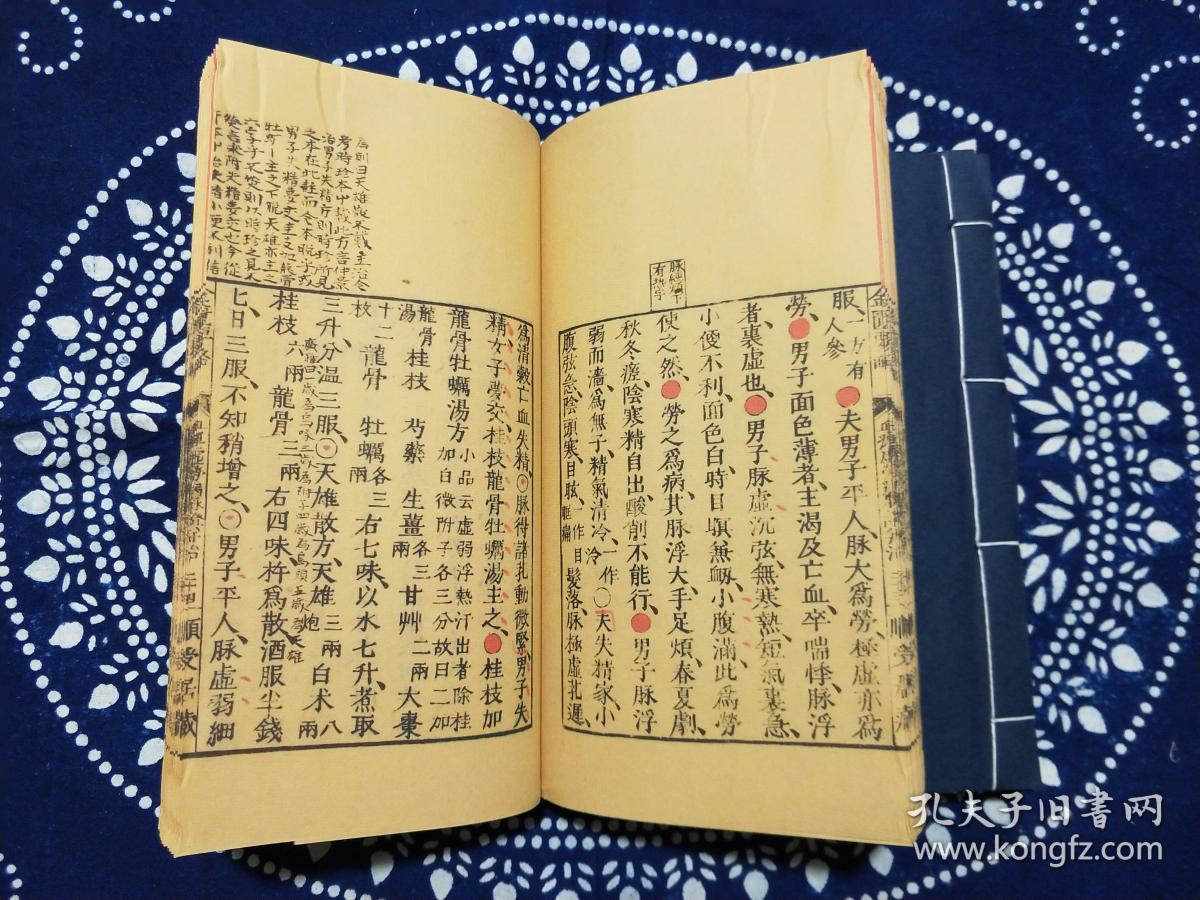 服、一方有人參●夫男子平人、脉大為勞、極虛亦為
勞、●男子面色薄者、主渴及亡血、卒喘悸、脉浮
者、裏虛也、●男子脉虛沉弦、無寒熱、短氣裏急、
小便不利、面色白、時目瞑兼衄、小腹滿、此為勞
使之然、●勞之為病、其脉浮大、手足煩、春夏劇、
秋冬瘥、陰寒精自出、酸削不能行、●男子脉浮
弱而濇、為無子、精氣清冷、一作冷○夫失精家、小
腹弦急、陰頭寒、目眩、一作目眶痛髮落、脉極虛芤遲、
脉經煩下有熱字
為清穀亡血失精、○脉得諸芤動微緊、男子失
精、女子夢交、桂枝龍骨牡蠣湯主之、●桂枝加
龍骨牡蠣湯方小品云虛弱浮熱汗出者除桂加白薇附子各三分故曰二加
龍骨湯桂枝 芍藥 生薑各三兩甘艸二兩大棗
十二枚龍骨 牡蠣各三右七味、以水七升、煮取
三升、分溫三服、○天雄散方、天雄三兩炮白术八兩
桂枝六兩龍骨三兩右四味杵為散、酒服半錢
七、日三服、不知稍增之、○男子平人、脉虛弱細
考時珍本中載此方言仲景
治男子失精方則時珍所見
之本在此註而今本脱字或
男子失精夢交主之加龍骨
牡蠣主之下脱天雄亦主之
順受居藏
孔夫子旧书网
www.kongfz.com